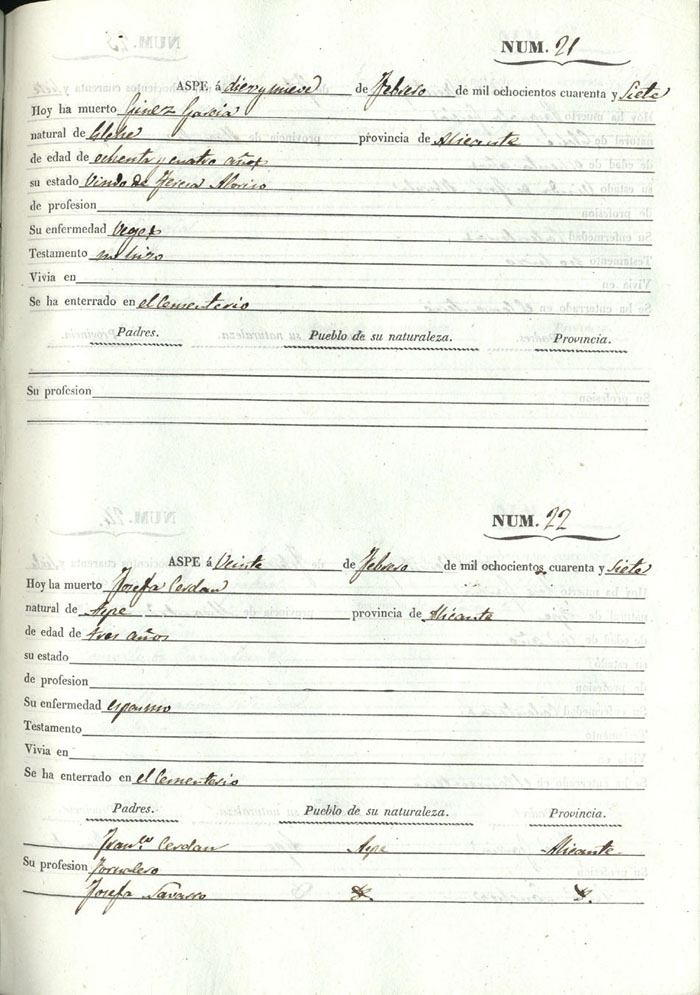 NUM. 21
ASPE á diez y nueve de Febrero de mil ochocientos cuarenta y Siete
Hoy ha muerto Ginez Garcia
natural de Elche provincia de Alicante
de edad de ochenta y cuatro años
su estado Viudo de Teresa Alorico
de profesion
Su enfermedad vegez
Testamento no hizo
Vivia en
Se ha enterrado en el Cementerio
Padres. Pueblo de su naturaleza. Provincia.
Su profesion
NUM. 22
ASPE á Veinte de Febrero de mil ochocientos cuarenta y Siete
Hoy ha muerto Josefa Cerdan
natural de Aspe provincia de Alicante
de edad de tres años
su estado
de profesion
Su enfermedad espasmo
Testamento
Vivia en
Se ha enterrado en el Cementerio
Padres. Pueblo de su naturaleza. Provincia.
Franco. Cerdan Aspe Alicante
Su profesion Jornalero
Josefa Navarro